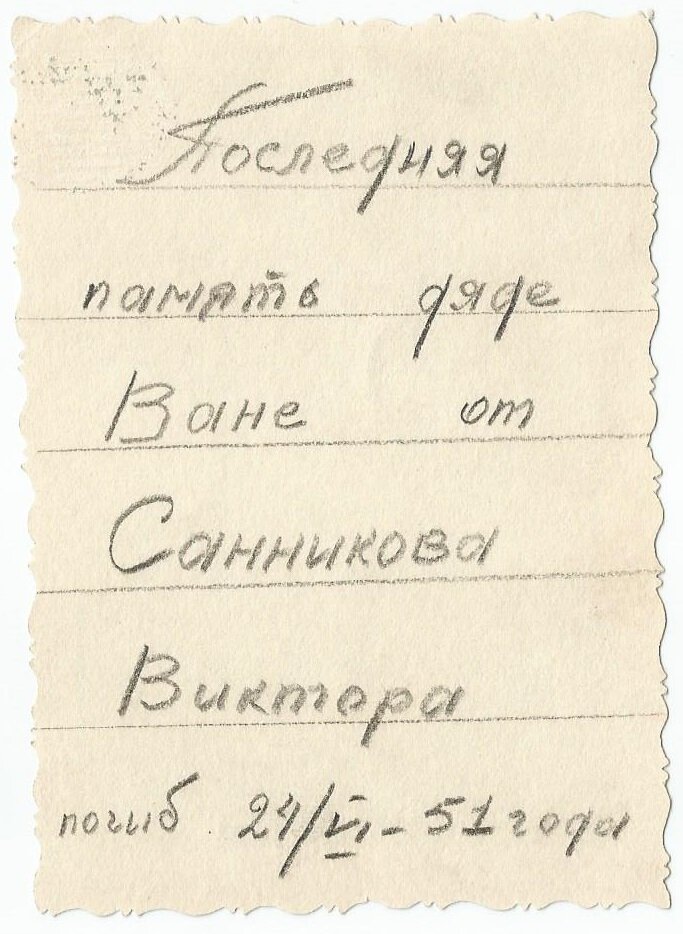 Последняя
память дяде
Ване от
Санникова
Виктора
погиб 24/VI - 51 года